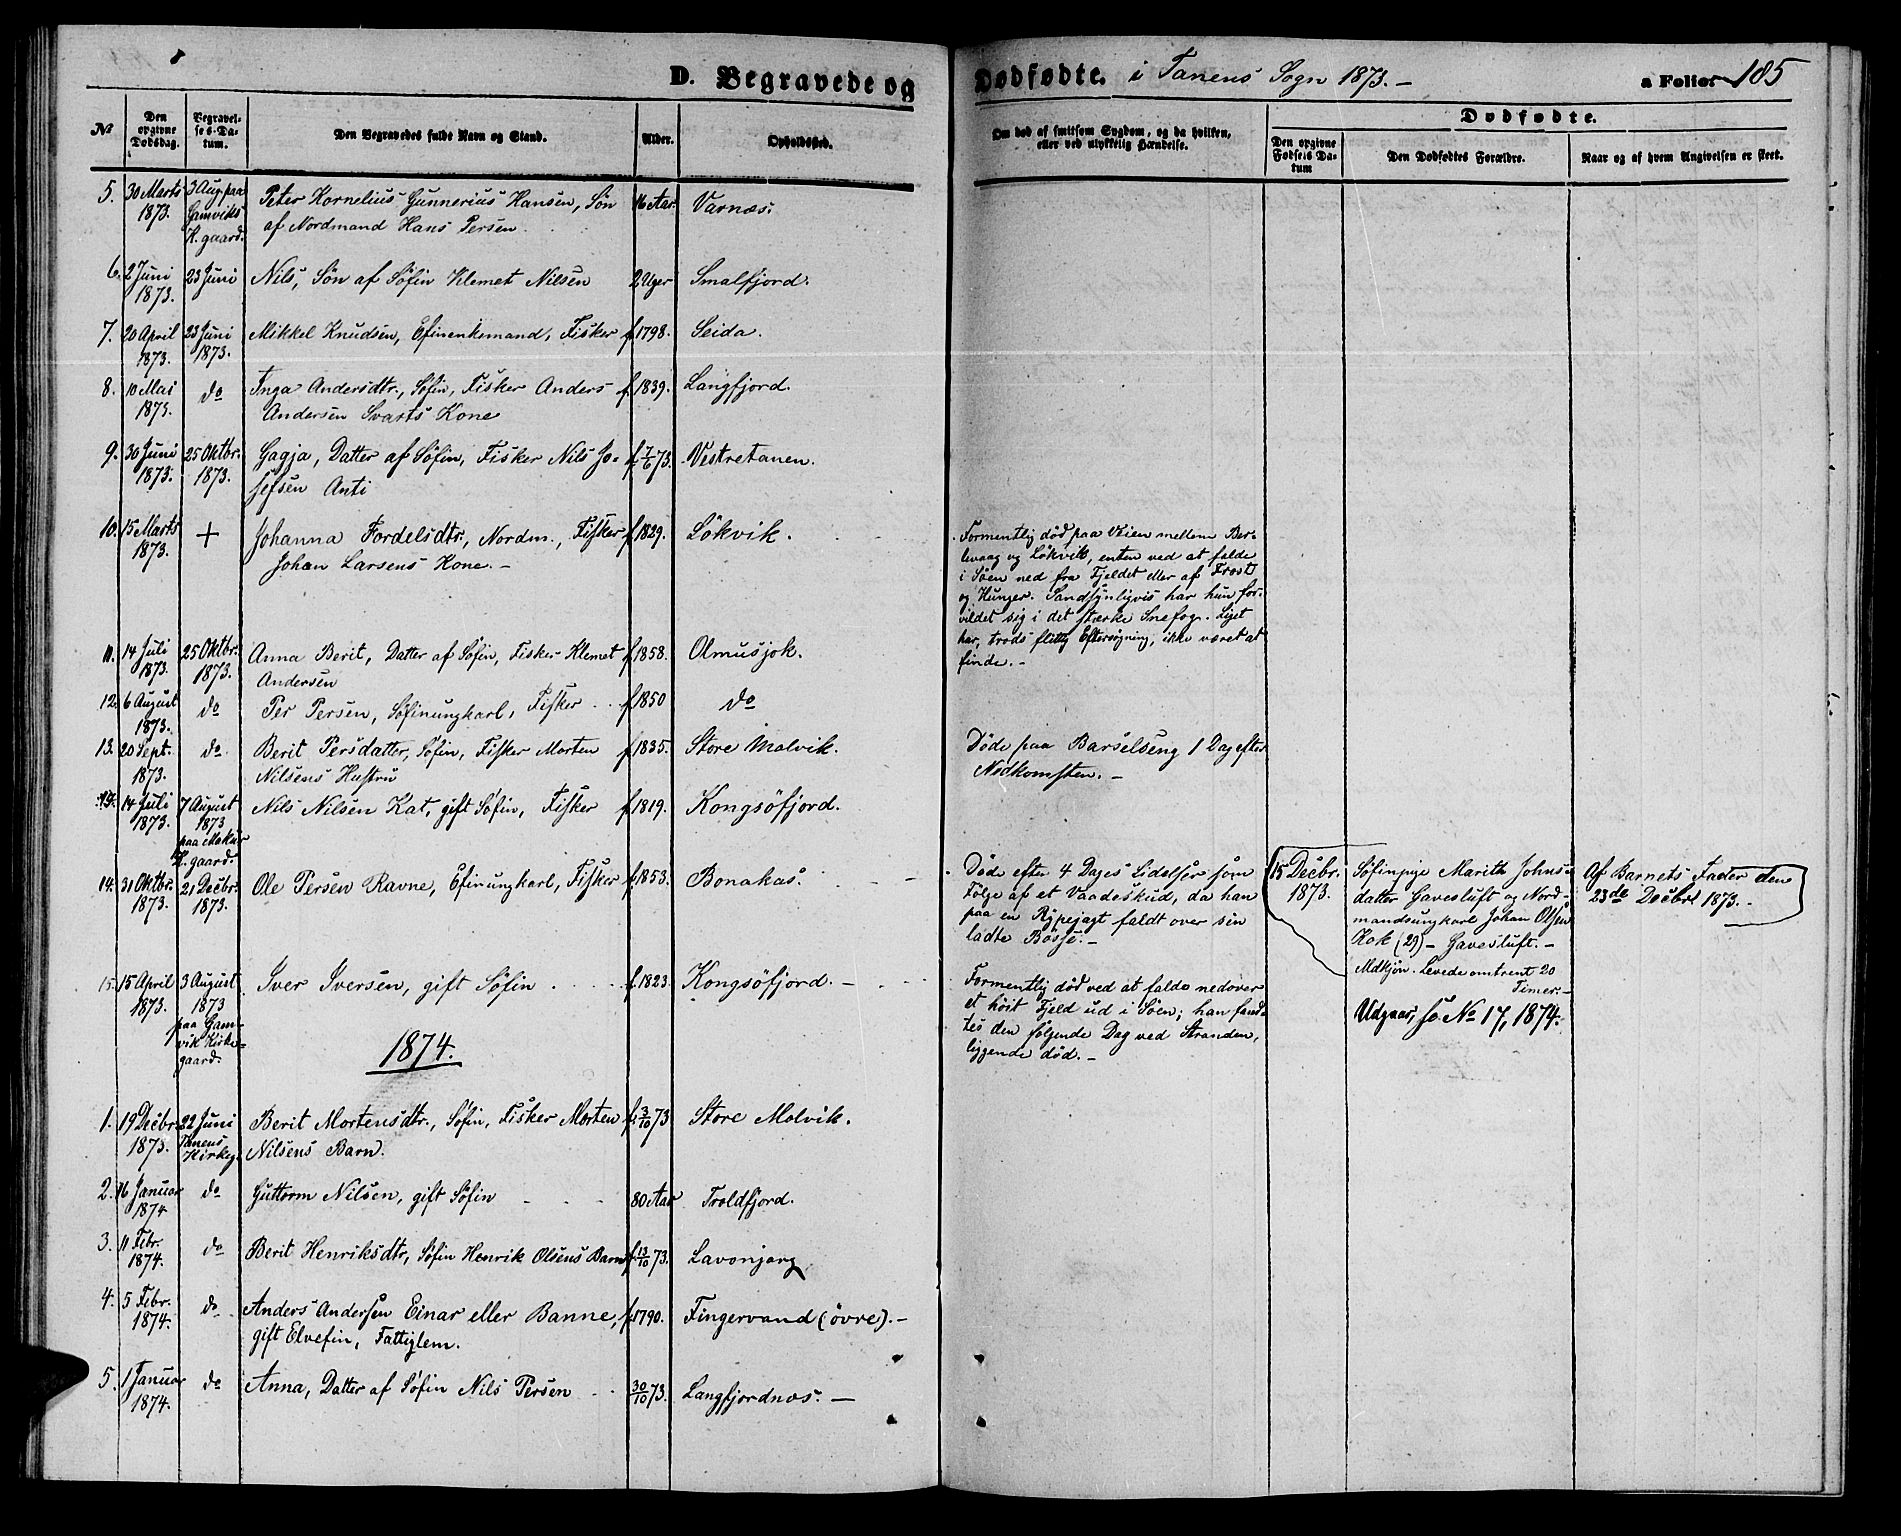 D. Begravede og Dødfødte. i Tanens Sogn 1873.- a Folio. 185
No
Den opgivne Dødsdag.
Begravelses-Datum.
Den Begravedes fulde Navn og Stand.
Alder.
Opholdssted.
Om død af smitsom Sygdom, og da hvilken, eller ved ulykkelig Hændelse.
Dødfødte.
Den opgivne Fødsels Datum
Den Dødfødtes Forældre.
Naar og af hvem Angivelsen er skeet.
5. 30 Marts 1873. 3 Aug. paa Gamviks K.gaard. Peter Kornelius Gunnerius Hansen, Søn 16 Aar. Varnæs.
af Nordmand Hans Persen
6. 2 Juni 1873. 23 Juni Nils, Søn af Søfin Klemet Nilsen 2 Uger Smalfjord.
7. 20 April 1873. 23 Juni 1873. Mikkel Knudsen, Efinenkemand, Fisker f. 1798. Seida.
8. 10 Mai 1873. do Inga Andersdtr., Søfin, Fisker Anders f. 1839. Langfjord.
Andersen Svarts Kone
9. 30 Juni 1873. 25 Oktbr. 1873. Gagja, Datter af Søfin, Fisker Nils Jo- f. 7/6 73. Vestretanen.
sefsen Anti
10. 15 Marts 1873. + Johanna Fordelsdtr., Nordm., Fisker f. 1829. Lökvik.
Johan Larsens Kone.-
Formentlig död paa Veien mellem Ber-
levaag og Lökvik, enten ved at falde
i Søen ned fra Fjeldet eller af Frost
og Hunger. Sandsynligvis har hun for-
vildet sig i det stærke Snefog. Liget
har, trods flittig Eftersøgning, ikke været at
finde.-
11. 14 Juli 1873. 25 Oktbr. 1873. Anna Berit, Datter af Søfin, Fisker Klemet f. 1858. Olmusjok.
Andersen
12. 6 August 1873. do Per Persen, Søfinungkarl, Fisker f. 1850 do
13. 20 Sept. 1873. do Berit Persdatter, Søfin, Fisker Morten f. 1835. Store Molvik. Döde paa Barselseng 1 Dag efter
Nilsens Hustru Nedkomsten.-
14. 14 Juli 1873. 7 August 1873 paa Makur K.gaard. Nils Nilsen Kat, gift Søfin, Fisker f. 1819. Kongsöfjord.
14. 31 Oktbr. 1873. 21 Decbr. 1873. Ole Persen Ravne, Efinungkarl, Fisker f. 1853. Bonakas.
Döde efter 4 Dages Lidelser som
Fölge af et Vaadeskud, da han
paa en Rypejagt faldt over sin
ladte Bösse.-
15 Decbr. 1873.
Søfinpige Marith Johns-
datter Gavesluft og Nord-
mandsungkarl Johan Olsen
Kok (29)- Gavesluft.-
Mdkjön. Levede omtrent 20
Timer.-
Udgaar, se No 17, 1874.
Af Barnets Fader den
23de Decbr. 1873.-
15. 15 April 1873. 3 August 1873 paa Gamvik Kirkegaard. Iver Iversen, gift Søfin f. 1823. Kongsöfjord.-
Formentlig död ved at falde nedover
et höit Fjeld ud i Søen; han fand-
tes den fölgende Dag ved Stranden,
liggende död.-
1874.
1. 19 Decbr. 1873. 22 Juni Tanens Kirkeg. Berit Mortensdtr., Søfin, Fisker Morten f. 3/10 73 Store Molvik.
Nilsens Barn.
2. 16 Januar 1874 do Guttorm Nilsen, gift Søfin 80 Aar Troldfjord.
3. 11 Febr. 1874. do Berit Henriksdtr., Søfin Henrik Olsens Barn f. 13/10 73. Lavonjarg
4. 5 Febr. 1874. do Anders Andersen Einar eller Banne, f. 1790. Fingervand (övre).-
gift Elvefin, Fattiglem.
5. 1 Januar 1874. do Anna, Datter af Søfin Nils Persen 30/10 73. Langfjordnæs.-